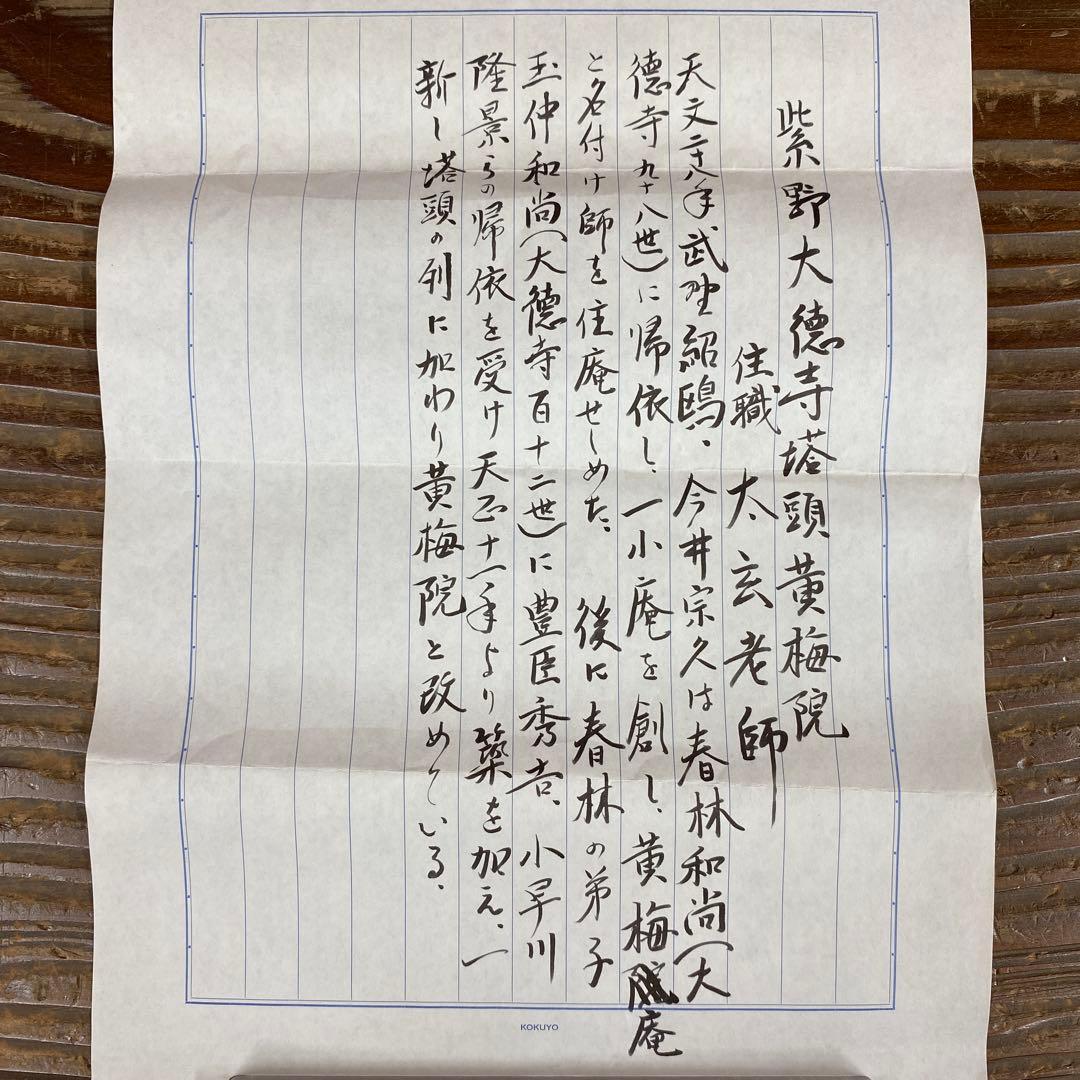 紫野大徳寺塔頭黄梅院
住職 太玄老師
天文二十八年武野紹鴎、今井宗久は春林和尚(大
徳寺九十八世)に帰依し、一小庵を創し、黄梅庵
と名付け師を住庵せしめた、 後に春林の弟子
玉仲和尚(大徳寺百十二世)に豊臣秀吉、小早川
隆景らの帰依を受け天正十一年より築を加え、一
新し塔頭の列に加わり黄梅院と改めている、
KOKUYO